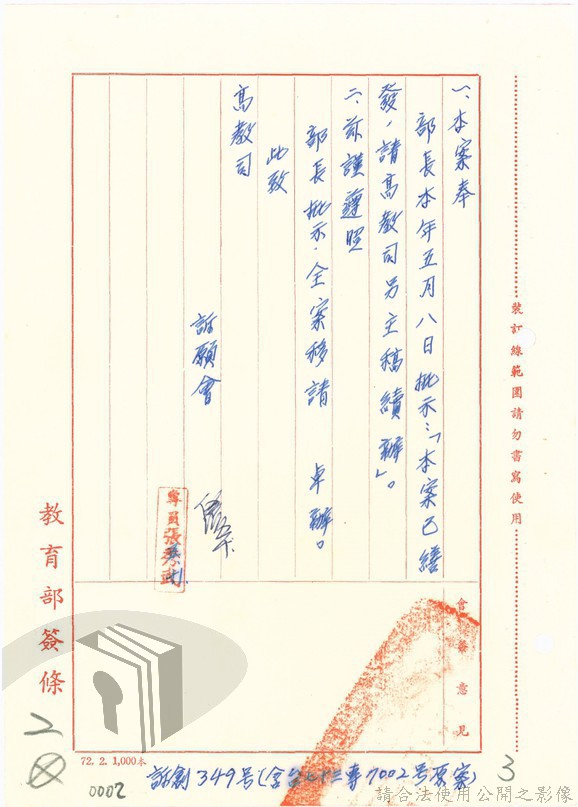 裝訂線範圍請勿書寫使用
一、本案奉
部長本年五月八日批示:「本案已繕
發,請高教司另主稿續辦」。
二、茲謹遵照
部長批示,全案移請 卓辦。
此致
高教司
訴願會
專員張
會簽意見
教育部簽條
72. 2. 1,000本
0002
訴創349号(含台七十三專7002号原案)
3
請合法使用公開之影像